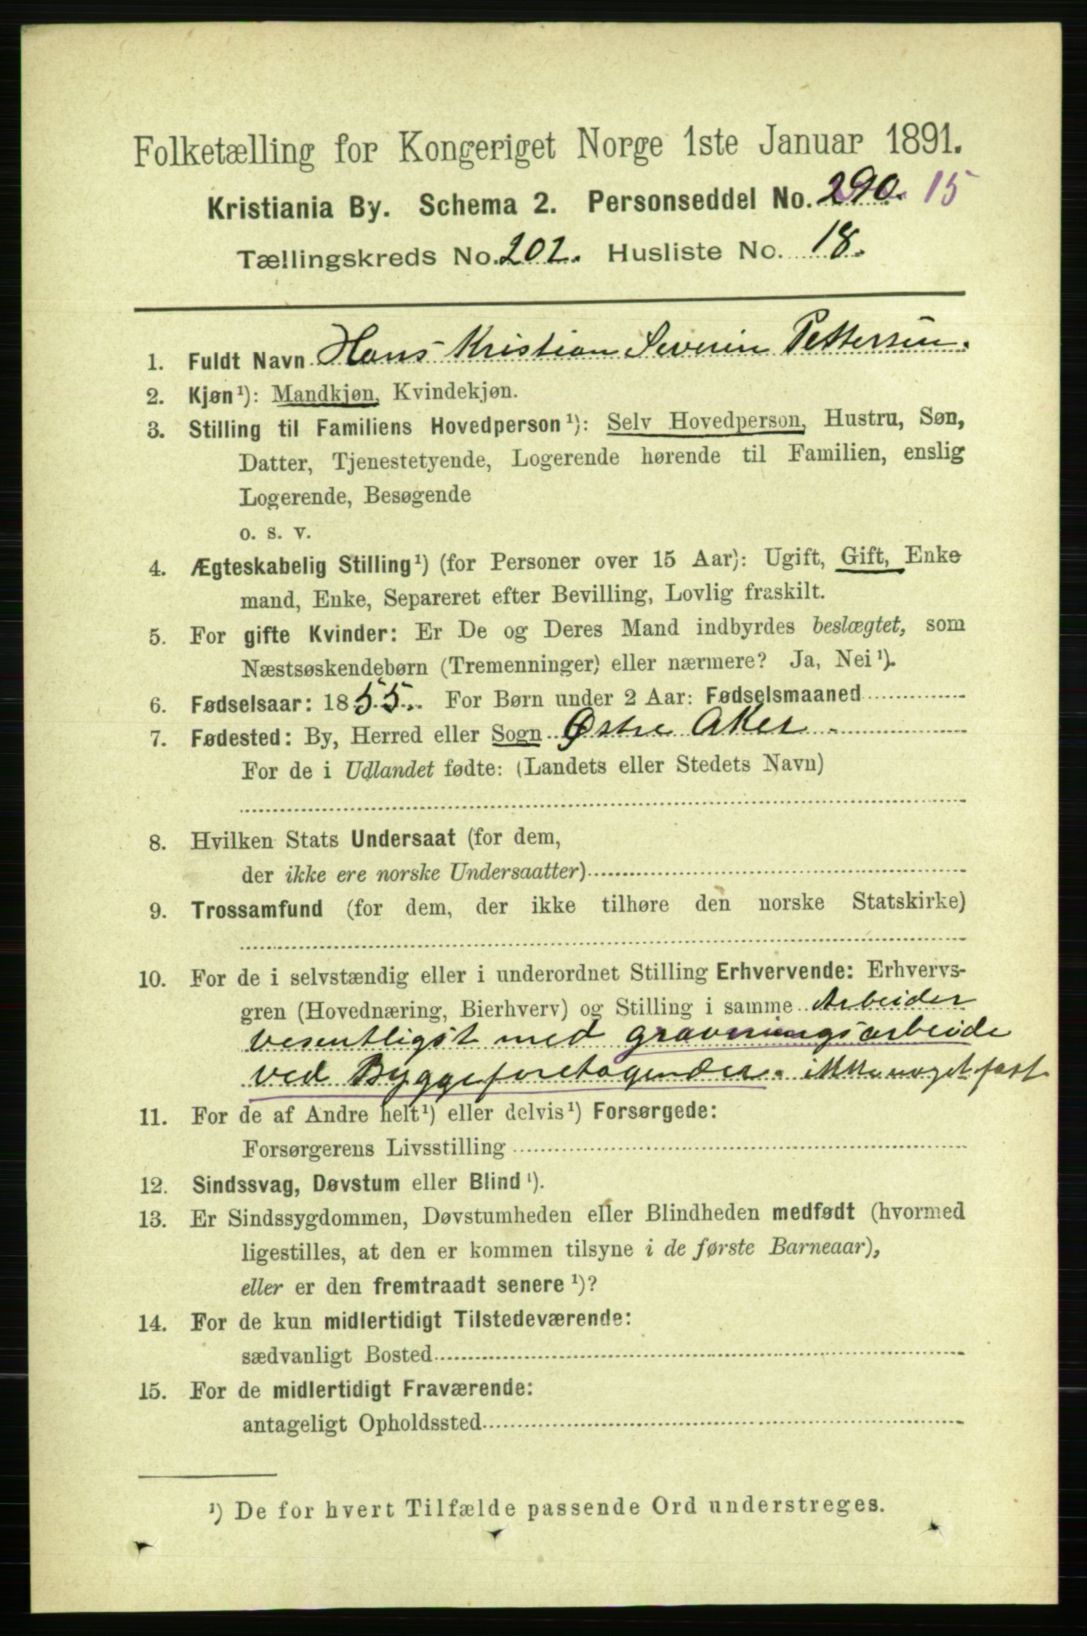 Folketælling for Kongeriget Norge 1ste Januar 1891.
Kristiania By. Schema 2. Personseddel No. 290. 15
Tællingskreds No. 202. Husliste No. 18.
1. Fuldt Navn Hans Kristian Severin Pettersen.
2. Kjøn¹): Mandkjøn, Kvindekjøn.
3. Stilling til Familiens Hovedperson¹): Selv Hovedperson, Hustru, Søn,
Datter, Tjenestetyende, Logerende hørende til Familien, enslig
Logerende, Besøgende
o. s. v.
4. Ægteskabelig Stilling¹) (for Personer over 15 Aar): Ugift, Gift, Enke
mand, Enke, Separeret efter Bevilling, Lovlig fraskilt.
5. For gifte Kvinder: Er De og Deres Mand indbyrdes beslægtet, som
Næstsøskendebørn (Tremenninger) eller nærmere? Ja, Nei¹).
6. Fødselsaar: 1855. For Børn under 2 Aar: Fødselsmaaned
7. Fødested: By, Herred eller Sogn Østre Aker.
For de i Udlandet fødte: (Landets eller Stedets Navn)
8. Hvilken Stats Undersaat (for dem,
der ikke ere norske Undersaatter)
9. Trossamfund (for dem, der ikke tilhøre den norske Statskirke)
10. For de i selvstændig eller i underordnet Stilling Erhvervende: Erhvervs-
gren (Hovednæring, Bierhverv) og Stilling i samme Arbeider
vesentligst med gravningsarbeide
ved Byggeforetagender. ikke noget fast
11. For de af Andre helt¹) eller delvis¹) Forsørgede:
Forsørgerens Livsstilling
12. Sindssvag, Døvstum eller Blind¹).
13. Er Sindssygdommen, Døvstumheden eller Blindheden medfødt (hvormed
ligestilles, at den er kommen tilsyne i de første Barneaar),
eller er den fremtraadt senere¹)?
14. For de kun midlertidigt Tilstedeværende:
sædvanligt Bosted
15. For de midlertidigt Fraværende:
antageligt Opholdssted
¹) De for hvert Tilfælde passende Ord understreges.